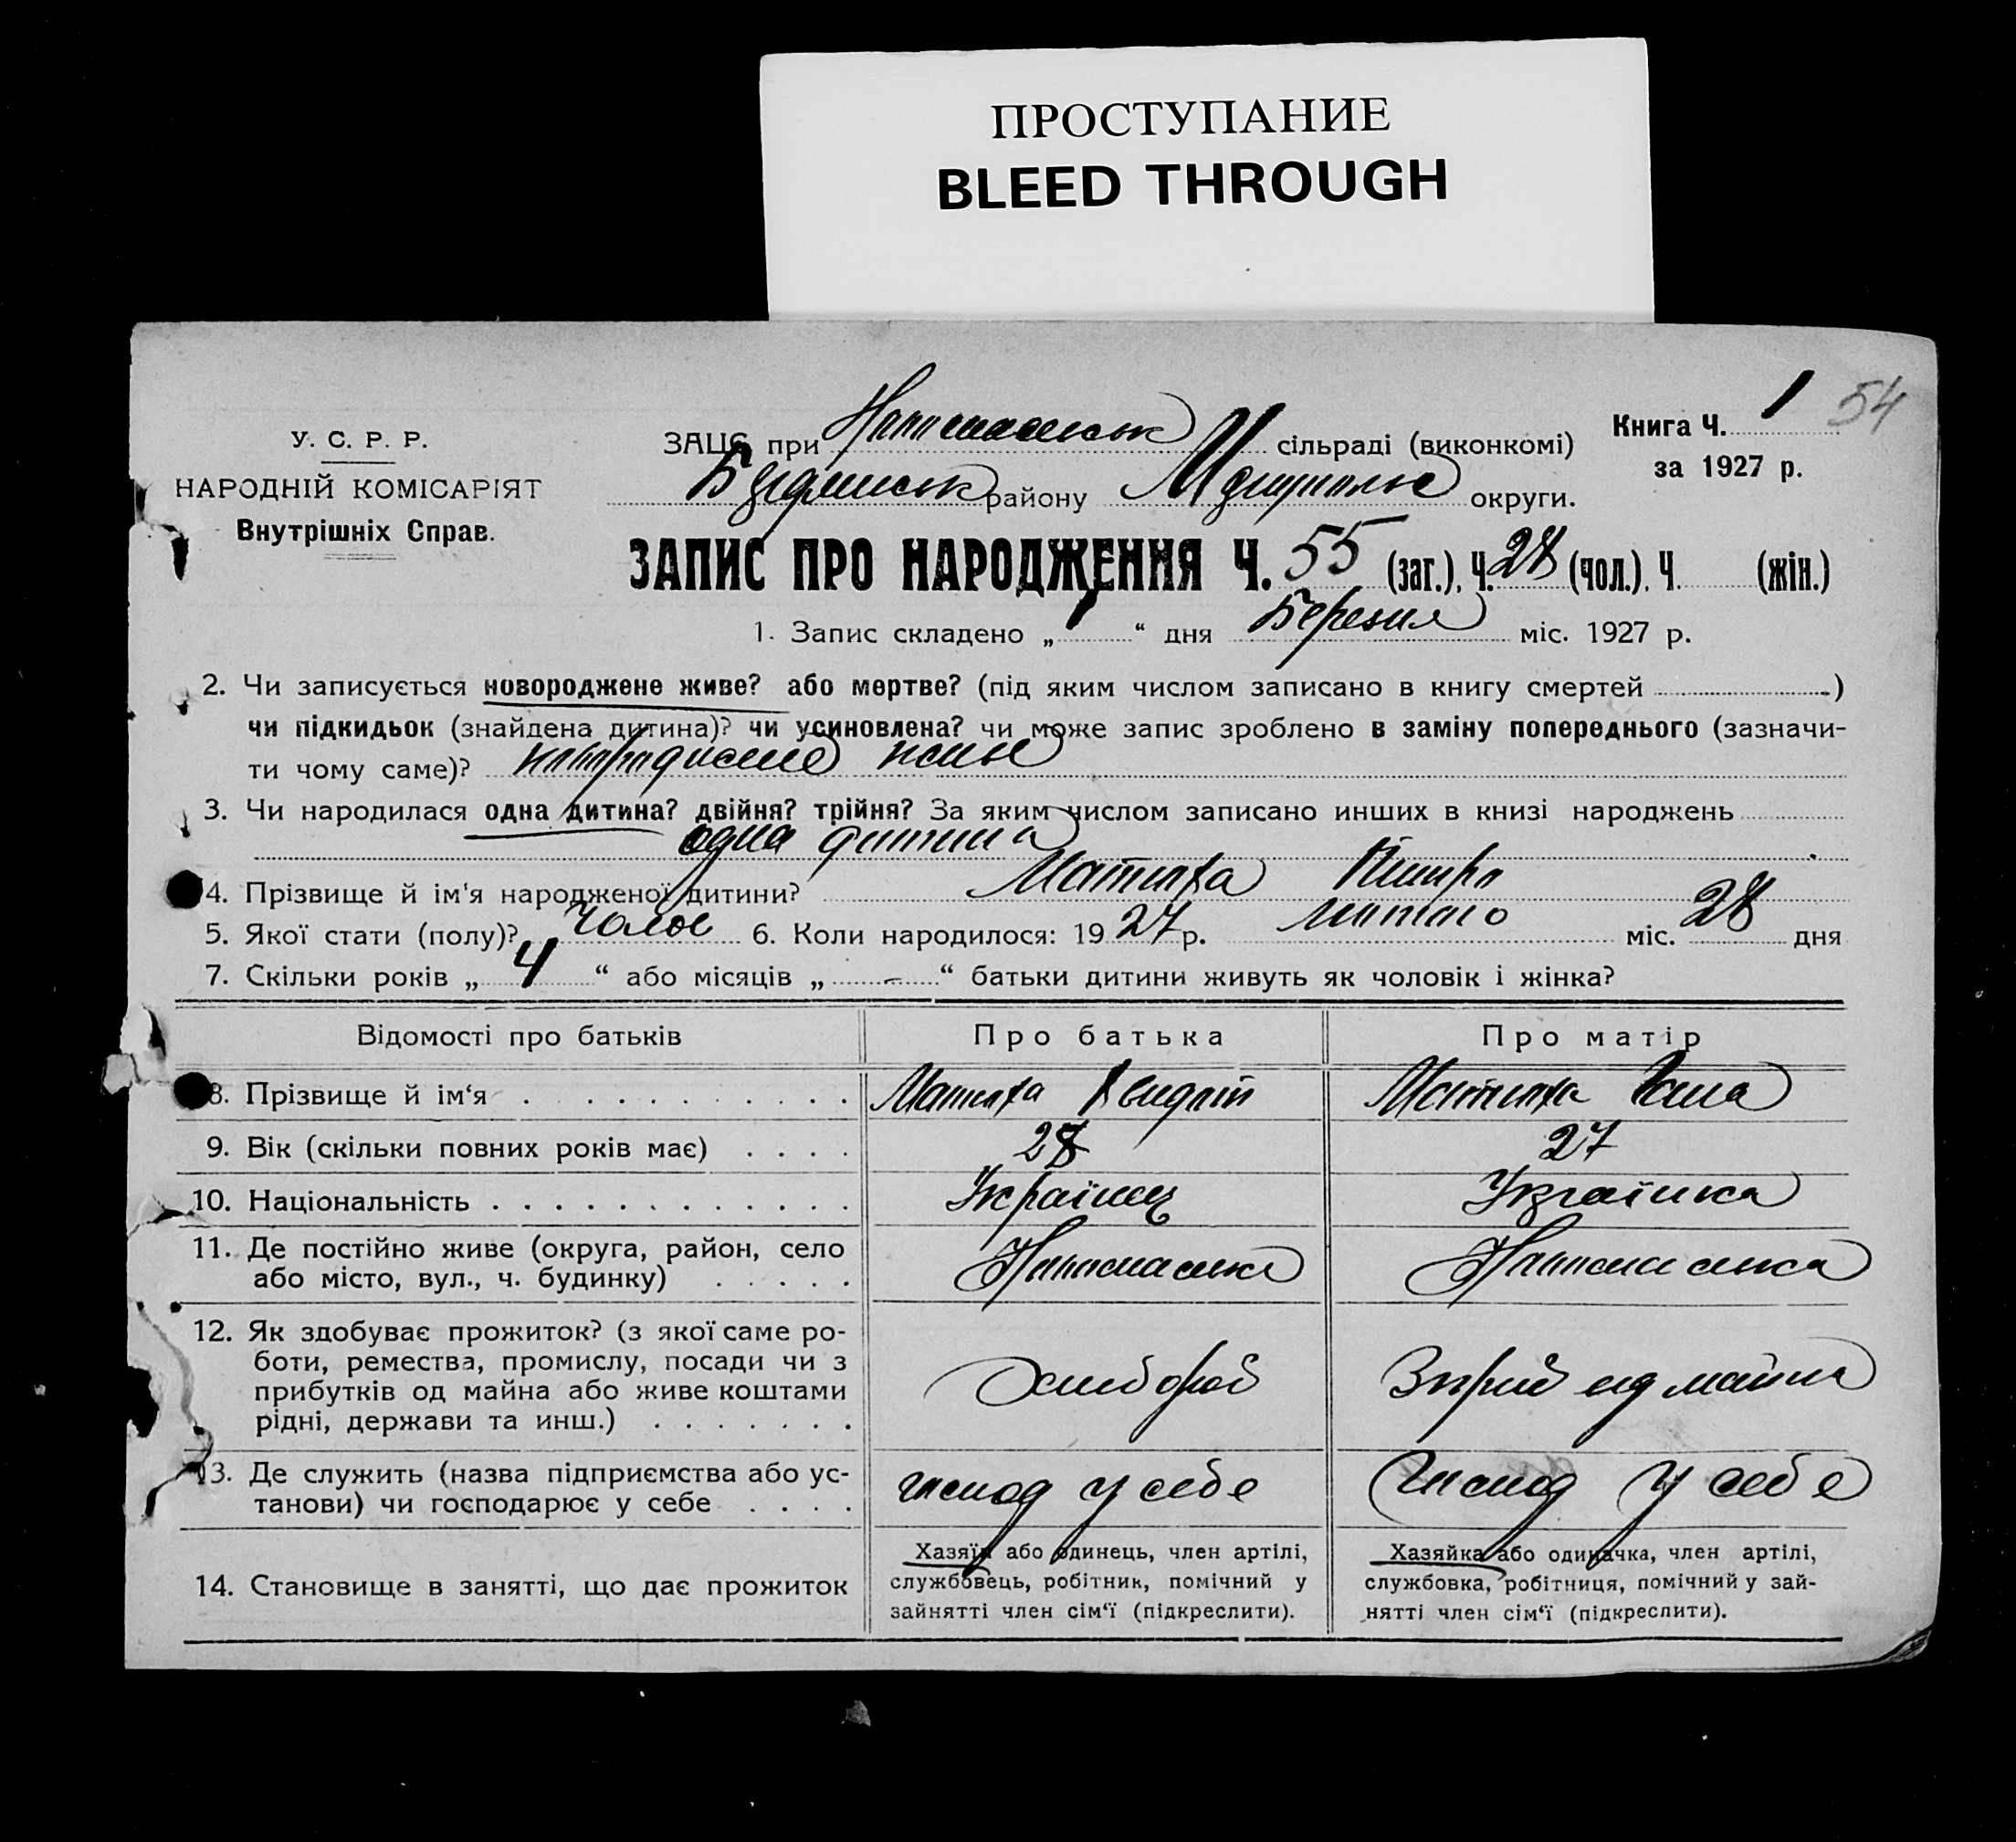 ПРОСТУПАНИЕ
BLEED THROUGH
Книга Ч. 1 54
за 1927 р.
У. С. Р. Р.
НАРОДНІЙ КОМІСАРІЯТ
Внутрішніх Справ.
ЗАЦС при сільраді (виконкомі)
району округи.
ЗАПИС ПРО НАРОДЖЕННЯ Ч. 55 (заг.), Ч. 28 (чол.), Ч. (жін.)
1. Запис складено „ 1 “ дня Березня міс. 1927 р.
2. Чи записується новороджене живе? або мертве? (під яким числом записано в книгу смертей )
чи підкидьок (знайдена дитина)? чи усиновлена? чи може запис зроблено в заміну попереднього (зазначи-
ти чому саме)?
3. Чи народилася одна дитина? двійня? трійня? За яким числом записано инших в книзі народжень
одна дитина
4. Прізвище й ім'я народженої дитини?
5. Якої стати (полу)? Чолов 6. Коли народилося: 1927 р. лютого міс. 28 дня
7. Скільки років „ 4 “ або місяців „ - “ батьки дитини живуть як чоловік і жінка?
Відомості про батьків Про батька Про матір
8. Прізвище й ім‘я
9. Вік (скільки повних років має) 28 27
10. Національність Українец Українка
11. Де постійно живе (округа, район, село
або місто, вул., ч. будинку)
12. Як здобуває прожиток? (з якої саме ро-
боти, ремества, промислу, посади чи з
прибутків од майна або живе коштами
рідні, держави та инш.) Хлібороб
13. Де служить (назва підприємства або ус-
танови) чи господарює у себе господ у себе господ у себе
14. Становище в занятті, що дає прожиток
Хазяїн або одинець, член артілі,
службовець, робітник, помічний у
зайнятті член сім‘ї (підкреслити).
Хазяйка або одиначка, член артілі,
службовка, робітниця, помічний у зай-
нятті член сім‘ї (підкреслити).